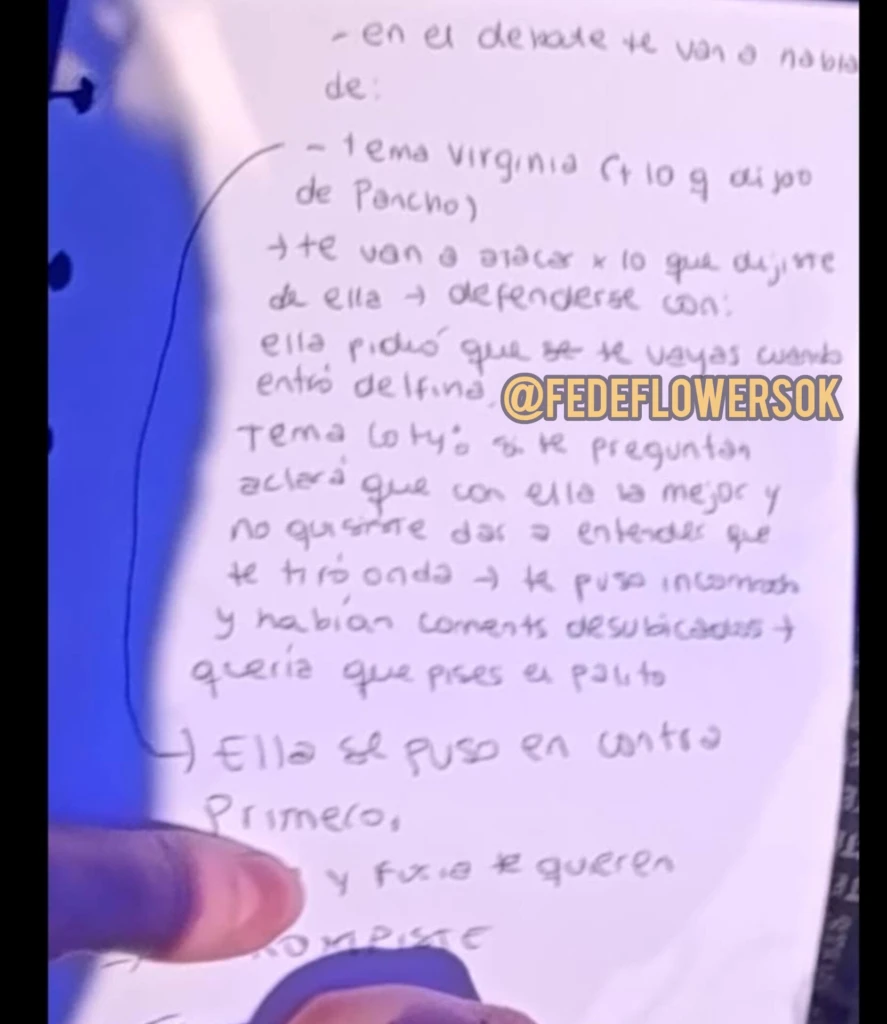 - en el debate te van a habla
de:
- tema Virginia (+ lo q dijo
de Pancho)
→ te van a atacar x lo que dijiste
de ella → defenderse con:
ella pidió que se te vayas cuando
entró delfina.
@FEDEFLOWERSOK
Tema Coty: si te preguntan
aclará que con ella la mejor y
no quisiste dar a entender que
te tiró onda → te puso incomodo
y habían coments desubicados →
quería que pises el palito
→ Ella se puso en contra
Primero.
y furia te queren
ROMPISTE